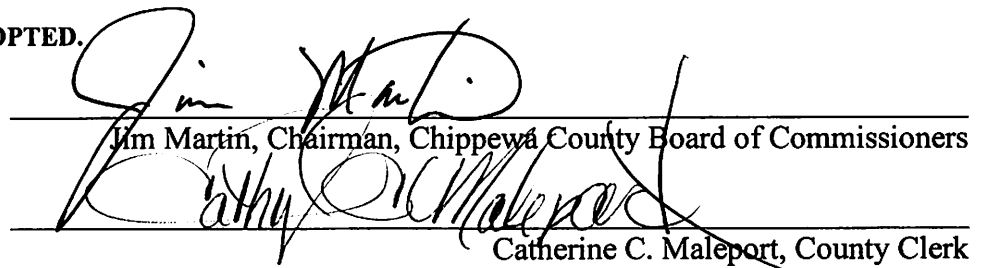 OPTED.
Jim Martin
Jim Martin, Chairman, Chippewa County Board of Commissioners
Cathy C. Maleport
Catherine C. Maleport, County Clerk